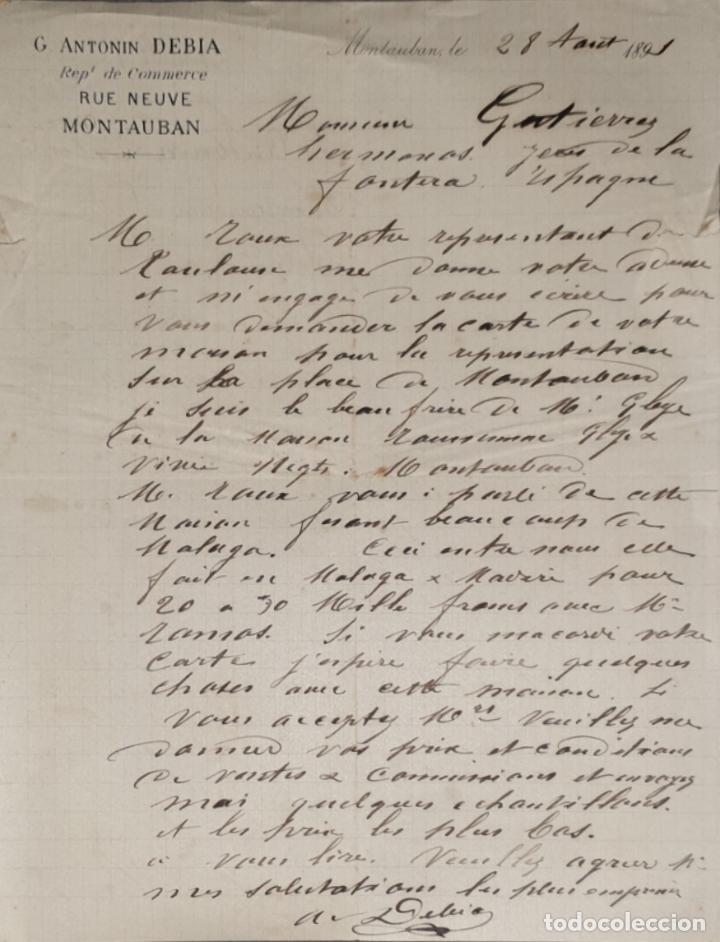 G. ANTONIN DEBIA
Repᵗ de Commerce
RUE NEUVE
MONTAUBAN
Montauban, le 28 Aout 1891
Monsieur Gutierrez
hermanos. Jeres de la
fontera. Espagne
M. Roux votre representant de
Toulouse me donne votre adresse
et m'engage de vous ecrire pour
vous demander la carte de votre
maison pour la representation
sur la place de Montauban
je suis le beau frere de Mʳ
de la Maison
Negts. Montauban.
M. Roux vous a parlé de cette
Maison fesant beaucoup de
Malaga. Ceci entre nous elle
fait en Malaga & Madère pour
20 a 30 Mille francs avec Mʳ
Ramos. Si vous macordé votre
Carte j'espère faire quelques
choses avec cette maison. Si
vous acceptez Mʳˢ Veuillez me
donner vos prix et conditions
de ventes & Commissions et envoyez
moi quelques echantillons.
et les prix les plus bas.
a vous lire. Veuillez agreer
mes salutations les plus
Debia
todocoleccion
todocoleccion.net